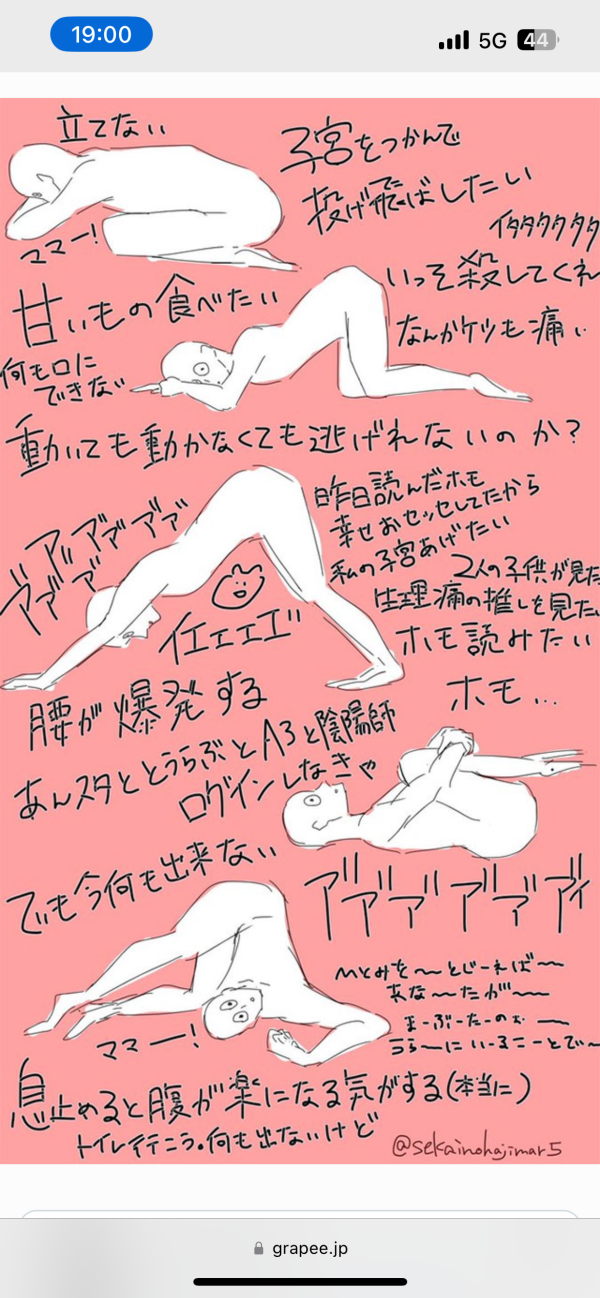 19:00
5G 44
立てない
子宮をつかんで
投げ飛ばしたい
ママー!
イタタタタタタ
いっそ殺してくれ
甘いもの食べたい
なんかケツも痛い
何も口に
できない
動いても動かなくても逃げれないのか?
昨日読んだホモ
幸せおセッセしてたから
私の子宮あげたい
2人の子供が見た
生理痛の推しを見た
ホモ読みたい
ホモ...
イエエエエ゛
腰が爆発する
あんスタととうらぶとA3と陰陽師
ログインしなきゃ
でも今何も出来ない
ママー!
まーぶーたーのぉー
うらーにいーるこーとでー
息止めると腹が楽になる気がする(本当に)
トイレ行こう。何も出ないけど
@sekainohajimar5
grapee.jp